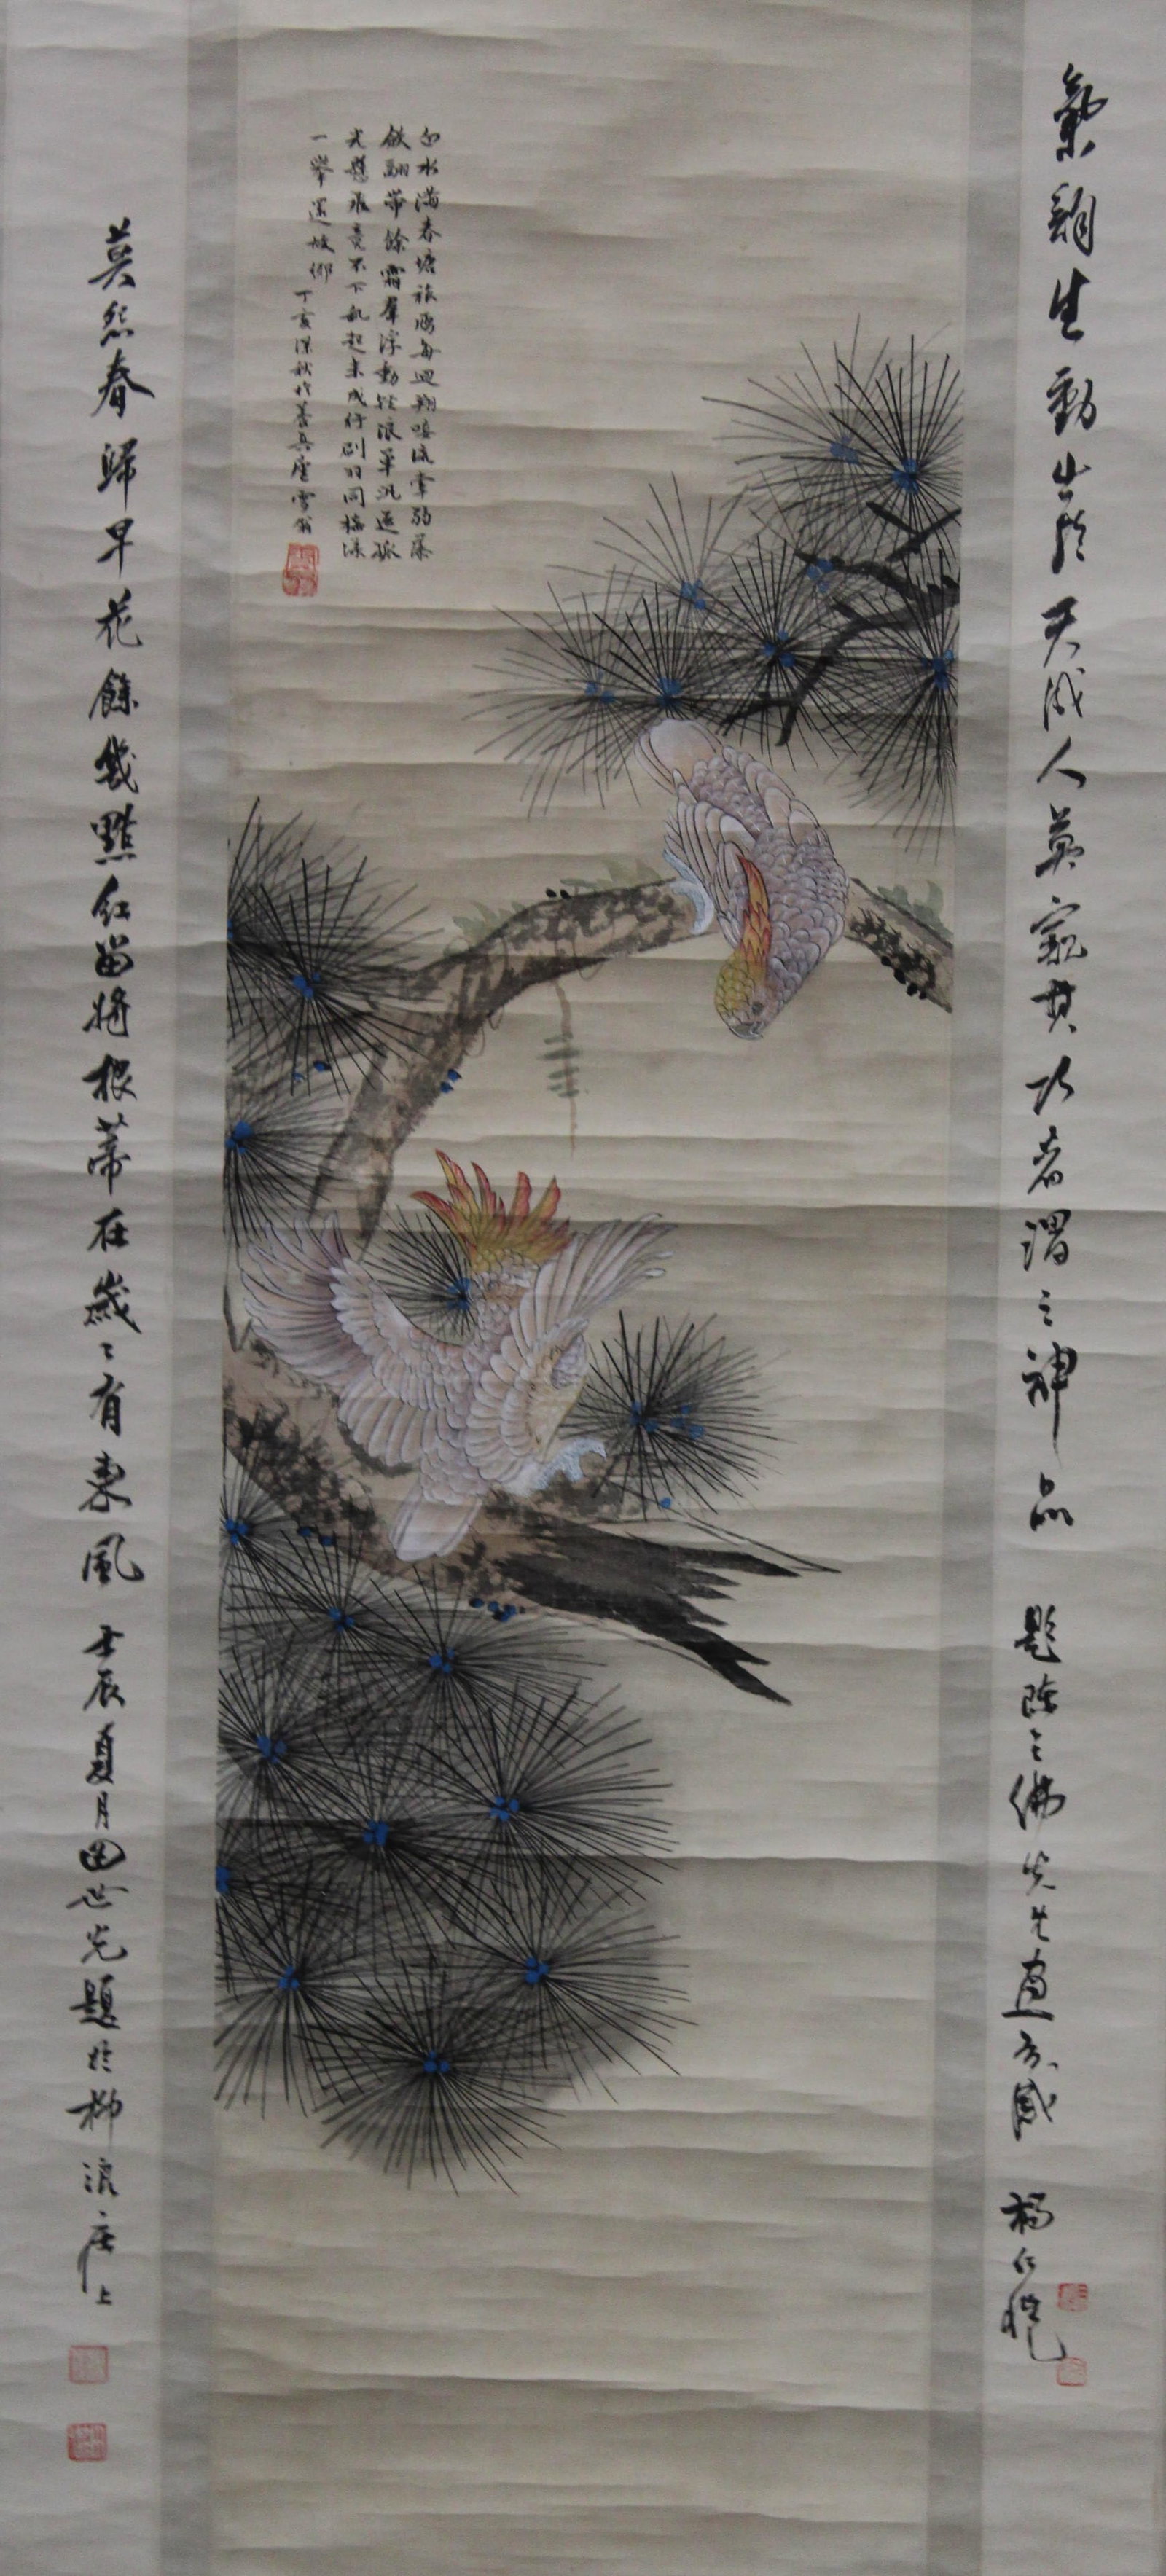 氣韻生動出於天成人莫窺其巧者謂之神品 題陳之佛先生画 楊仁愷
白水滿春塘旅雁每迴翔唼流牽弱藻
斂翮帶餘霜羣浮動輕浪單汎逐孤
光懸飛竟不下亂起未成行刷羽同搖漾
一舉還故鄉 丁亥深秋於養真廬雪翁
莫怨春歸早花餘幾點紅留將根蒂在歲〻有東風 壬辰夏月田世光題於柳浪庄上